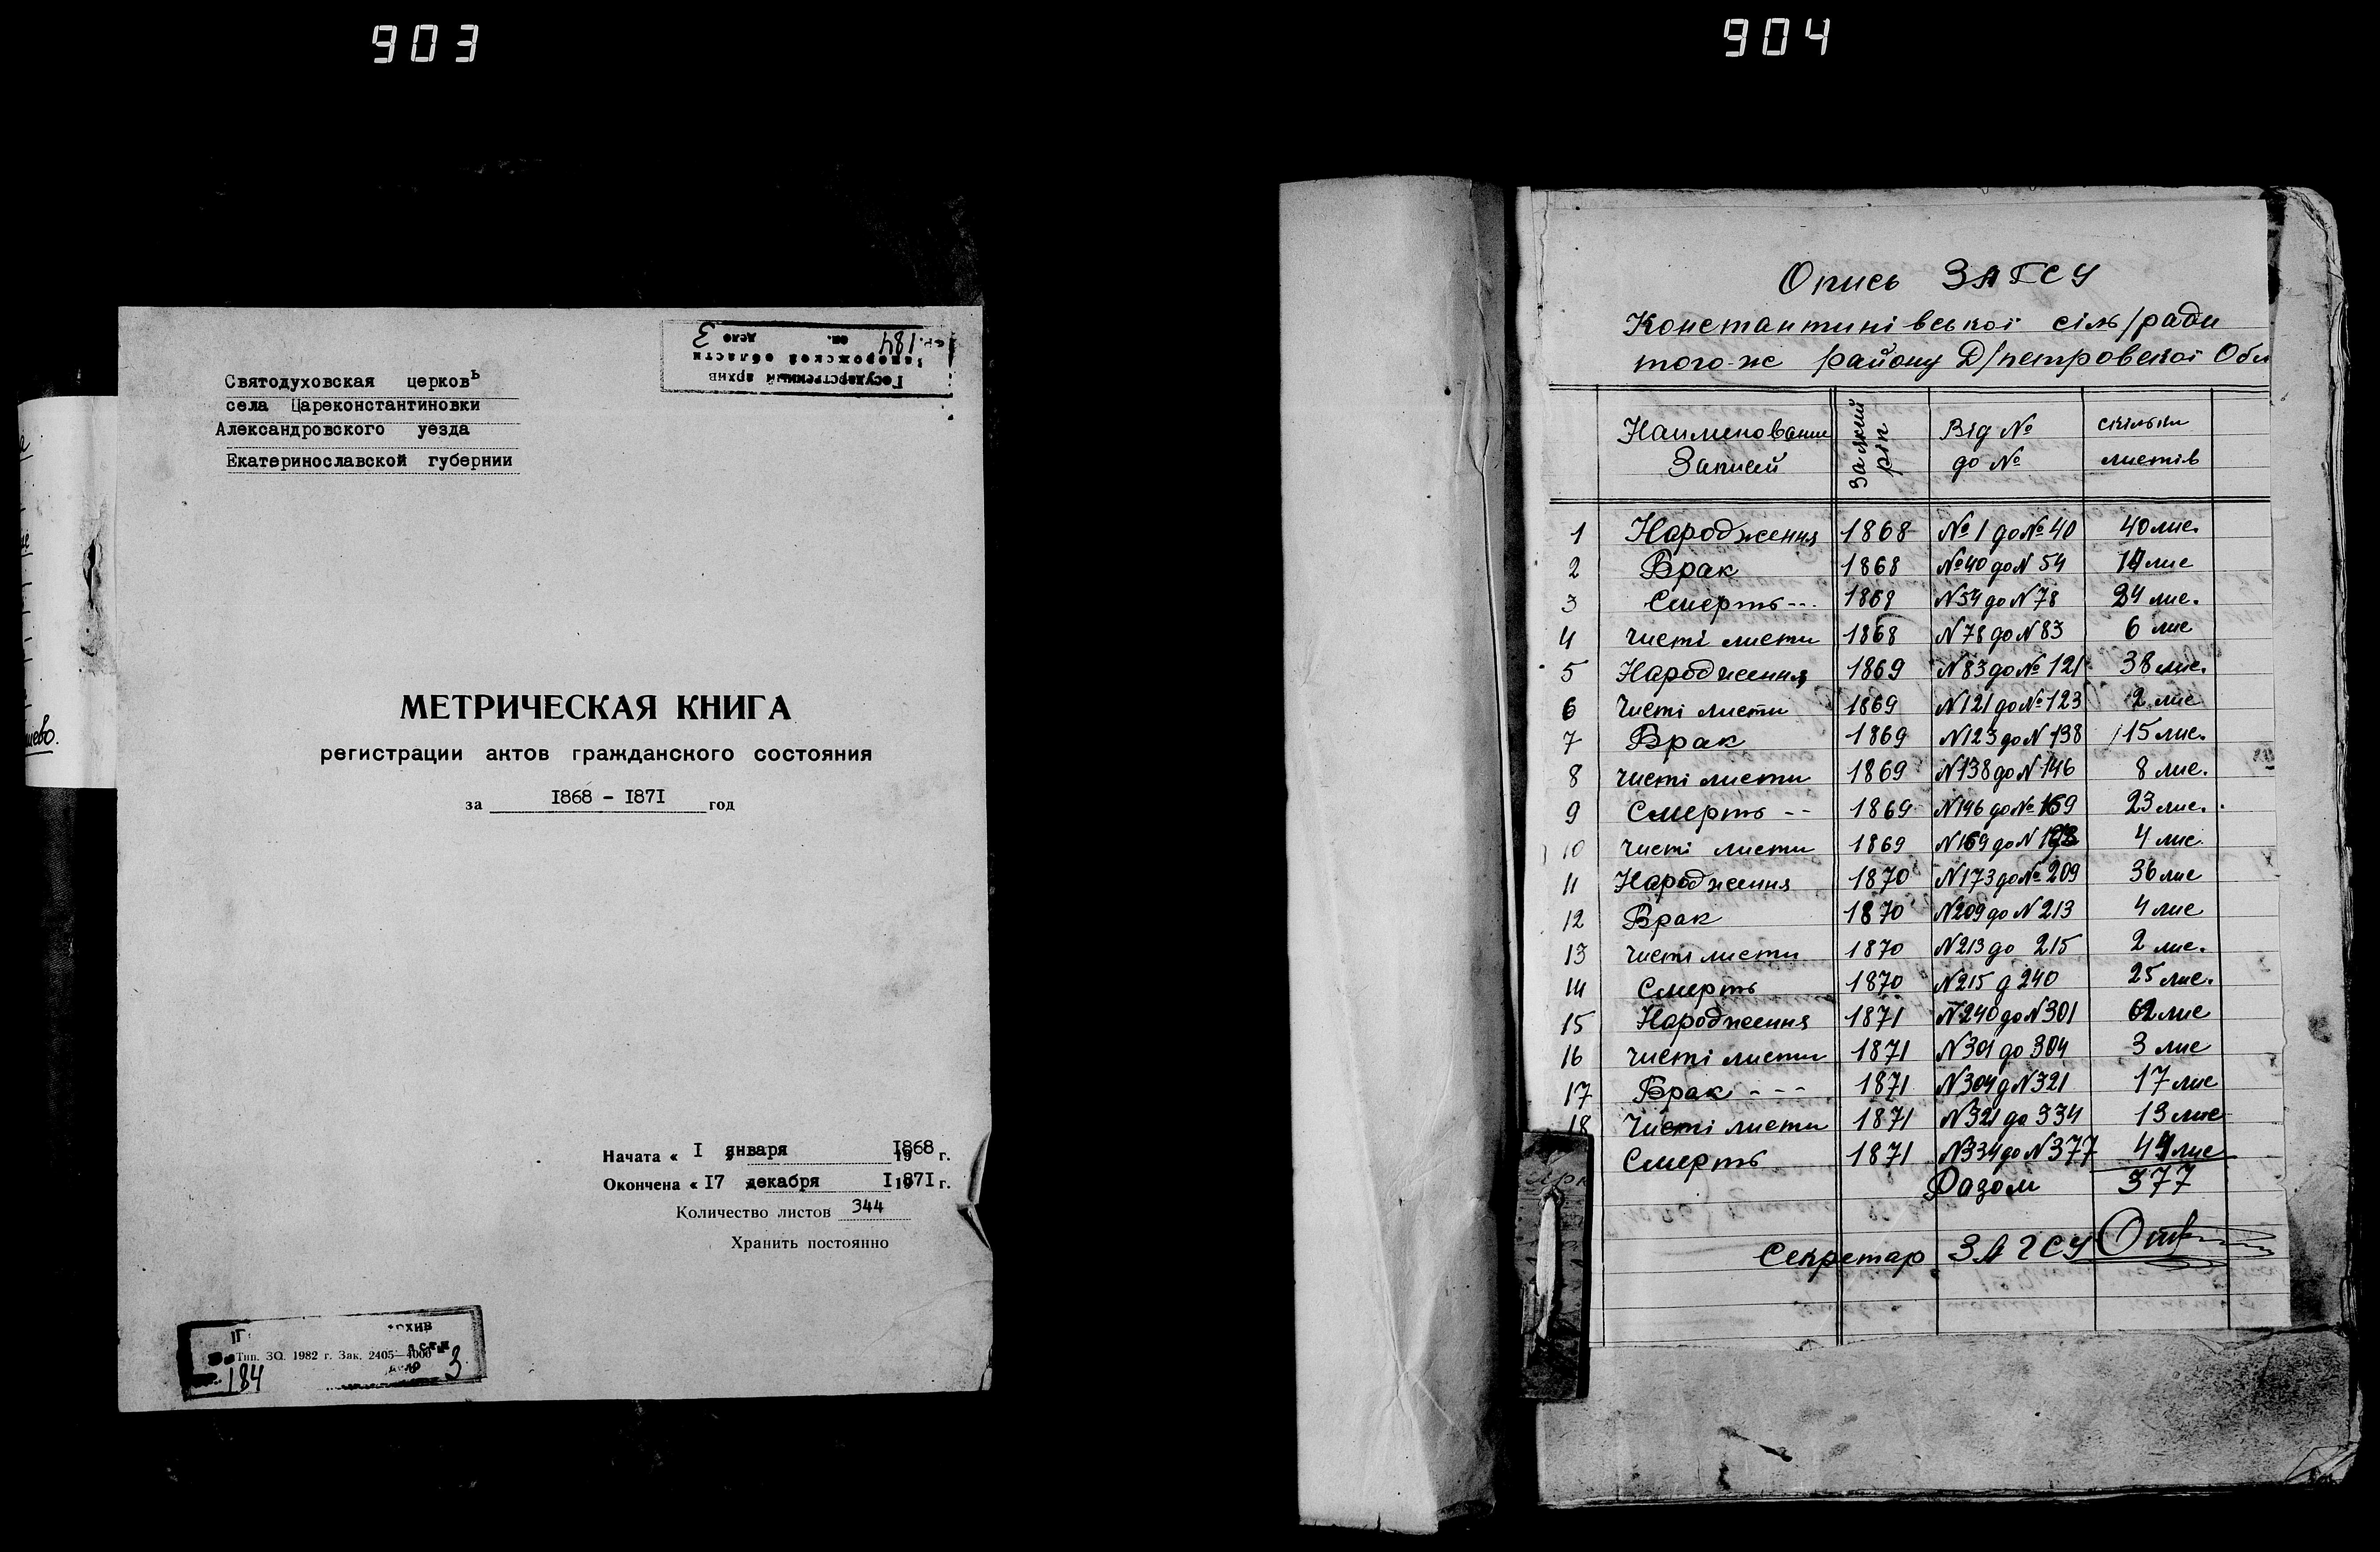 903
904
Государственный архив
Запорожской области
184 оп. дело 3
Святодуховская церковь
села Цареконстантиновки
Александровского уезда
Екатеринославской губернии
МЕТРИЧЕСКАЯ КНИГА
регистрации актов гражданского состояния
за 1868 - 1871 год
Начата « 1 января 1868 г.
Окончена « 17 декабря 1871 г.
Количество листов 344
Хранить постоянно
Тип. ЗО. 1982 г. Зак. 2405—4000
184 3
Опись ЗАГСУ
Константинівської сіль/ради
того-ж району Д/петровскої Обл
Наименование Записей За який ріп Від № до № скільки листів
1 Народження 1868 №1 до №40 40 лис.
2 Врак 1868 №40 до N 54 14 лис
3 Смерть -- 1868 N54 до N78 24 лис.
4 чисті листи 1868 N78 до N83 6 лис
5 Народження 1869 N83 до №121 38 лис.
6 Чисті листи 1869 N121 до №123 2 лис
7 Врак 1869 N123 до N138 15 лис.
8 чисті листи 1869 N138 до N146 8 лис.
9 Смерть -- 1869 N146 до №169 23 лис.
10 чисті листи 1869 N169 до N 4 лис
11 Народження 1870 N173 до №209 36 лис
12 Врак 1870 N209 до N213 4 лис
13 чисті листи 1870 N213 до 215 2 лис.
14 Смерть 1870 N215 д 240 25 лис.
15 Народження 1871 N240 до N301 62 лис
16 чисті листи 1871 N301 до 304 3 лис
17 Врак - - - 1871 N304 д N321 17 лис
18 Чисті листи 1871 N321 до 334 13 лис
Смерть 1871 N334 до N377 44 лис
Разом 377
Секретар ЗАГСУ